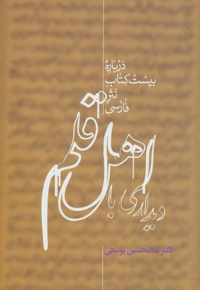 دربارهٔ
بیست کتاب
نثر
فارسی
دیداری با اهل قلم
دکتر غلامحسین یوسفی